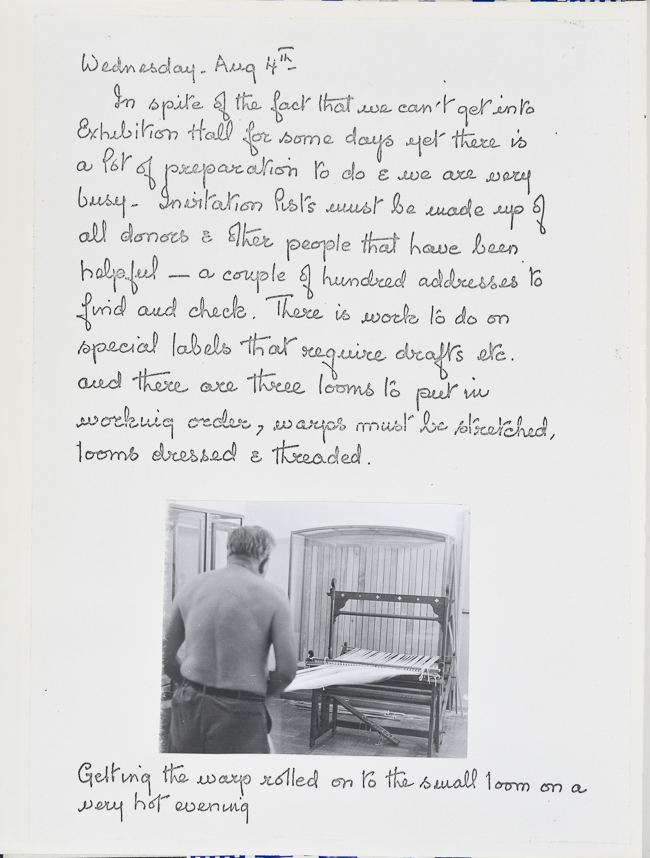 Wednesday. Aug 4th
In spite of the fact that we can't get into
Exhibition Hall for some days yet there is
a lot of preparation to do & we are very
busy - Invitation lists must be made up of
all donors & other people that have been
helpful — a couple of hundred addresses to
find and check. There is work to do on
special labels that require drafts etc.
and there are three looms to put in
working order, warps must be stretched,
looms dressed & threaded.
Getting the warp rolled on to the small loom on a
very hot evening